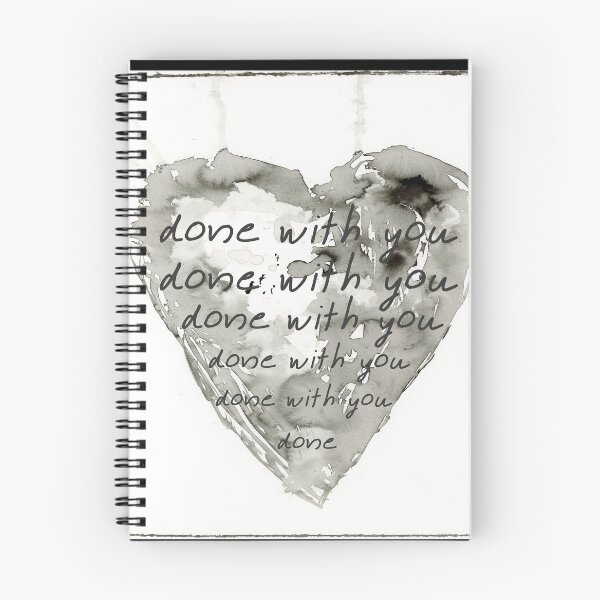 done with you
done with you
done with you
done with you
done with you
done